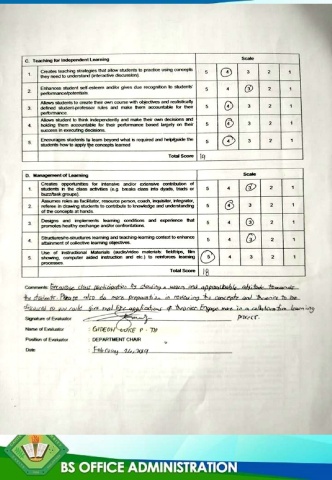 C. Teaching for Independent Learning Scale
1. Creates teaching strategies that allow students to practice using concepts they need to understand (interactive discussion) 5 4 3 2 1
2. Enhances student self-esteem and/or gives due recognition to students' performance/potentials 5 4 3 2 1
3. Allows students to create their own course with objectives and realistically defined student-professor rules and make them accountable for their performance 5 4 3 2 1
4. Allows student to think independently and make their own decisions and holding them accountable for their performance based largely on their success in executing decisions. 5 4 3 2 1
5. Encourages students to learn beyond what is required and help/guide the students how to apply the concepts learned 5 4 3 2 1
Total Score 19
D. Management of Learning Scale
1. Creates opportunities for intensive and/or extensive contribution of students in the class activities (e.g. breaks class into dyads, triads or buzz/task groups). 5 4 3 2 1
2. Assumes roles as facilitator, resource person, coach, inquisitor, integrator, referee in drawing students to contribute to knowledge and understanding of the concepts at hands. 5 4 3 2 1
3. Designs and implements learning conditions and experience that promotes healthy exchange and/or confrontations. 5 4 3 2 1
4. Structures/re-structures learning and teaching-learning context to enhance attainment of collective learning objectives. 5 4 3 2 1
5. Use of Instructional Materials (audio/video materials: fieldtrips, film showing, computer aided instruction and etc.) to reinforces learning processes. 5 4 3 2 1
Total Score 18
Comments: Encourage class participation by showing a warm and approachable attitude towards
the students. Please also do more preparation in reviewing the concepts and theories to be
discussed so you could give real life applications of theories. Engage more in a collaborative learning
Signature of Evaluator : process.
Name of Evaluator : GIDEON LUKE P. TY
Position of Evaluator : DEPARTMENT CHAIR
Date : February 26, 2019
BS OFFICE ADMINISTRATION